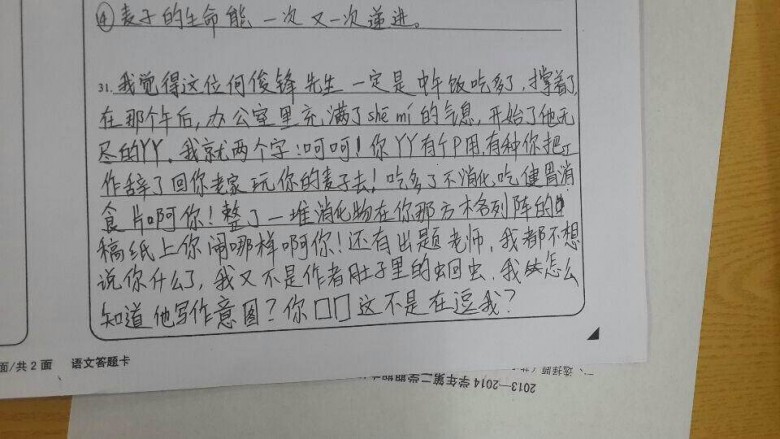 ④麦子的生命能一次又一次递进。
31.我觉得这位何俊锋先生一定是中午饭吃多了,撑着了,
在那个午后,办公室里充满了she mi的气息,开始了他无
尽的YY。我就两个字:呵呵!你YY有个P用,有种你把工
作辞了回你老家玩你的麦子去!吃多了不消化吃健胃消
食片啊你!整了一堆消化物在你那方木各列阵的
稿纸上你闹哪样啊你!还有出题老师,我都不想
说你什么了,我又不是作者肚子里的蛔虫.我怎么
知道他写作意图?你□□这不是在逗我?
面/共2面 语文答题卡
2013—2014学年第二学期